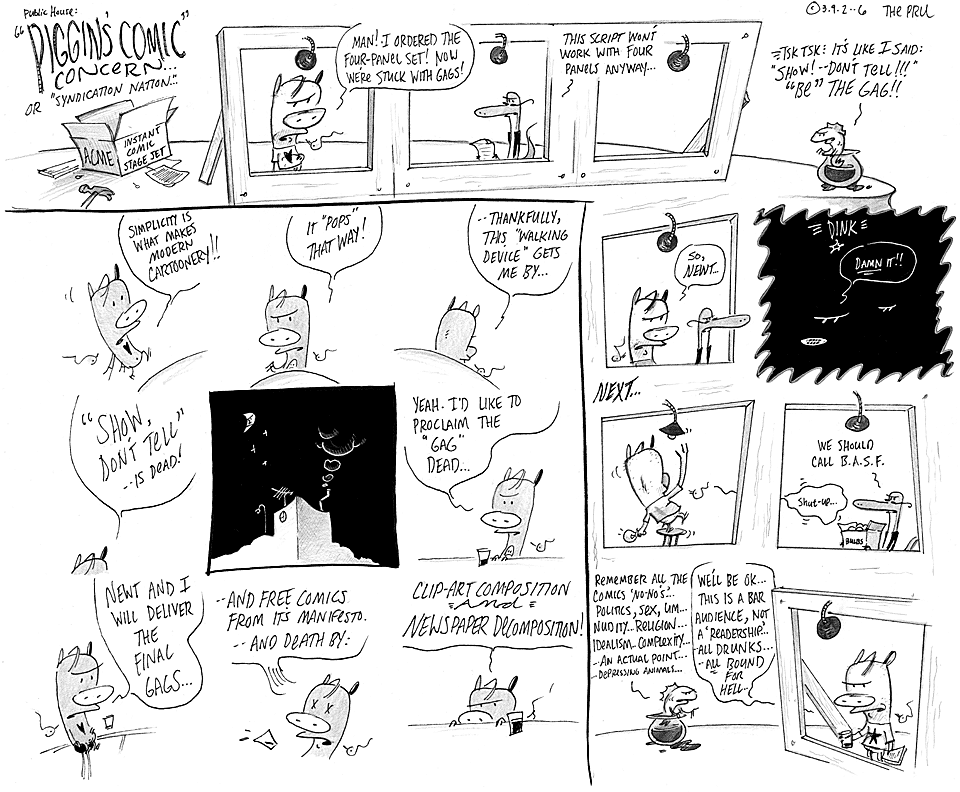 Public House:
"DIGGIN'S COMIC"
CONCERN...
OR "SYNDICATION NATION..."
ACME
INSTANT
COMIC
STAGE SET
MAN! I ORDERED THE
FOUR-PANEL SET! NOW
WE'RE STUCK WITH GAGS!
THIS SCRIPT WON'T
WORK WITH FOUR
PANELS ANYWAY...
©3.9.2--6 THE PRU
TSK TSK IT'S LIKE I SAID:
"SHOW! --DON'T TELL!!!"
"BE" THE GAG!!
SIMPLICITY IS
WHAT MAKES
MODERN
CARTOONERY!!
IT "POPS"
THAT WAY!
--THANKFULLY,
THIS "WALKING
DEVICE" GETS
ME BY...
"SHOW,
DON'T TELL"
--IS DEAD!
YEAH. I'D LIKE TO
PROCLAIM THE
"GAG"
DEAD...
NEWT AND I
WILL DELIVER
THE
FINAL
GAGS...
--AND FREE COMICS
FROM ITS MANIFESTO.
--AND DEATH BY:
CLIP-ART COMPOSITION
AND
NEWSPAPER DECOMPOSITION!
SO,
NEWT..
DINK
DAMN IT!!
NEXT...
WE SHOULD
CALL B.A.S.F.
Shut-up...
BULBS
REMEMBER ALL THE
COMICS 'NO-NO'S'...
POLITICS, SEX, UM...
NUDITY...RELIGION...
IDEALISM...COMPLEXITY...
--AN ACTUAL POINT...
--DEPRESSING ANIMALS...
WE'LL BE OK...
THIS IS A BAR
AUDIENCE, NOT
A 'READERSHIP'...
--ALL DRUNKS...
--ALL BOUND
FOR
HELL...